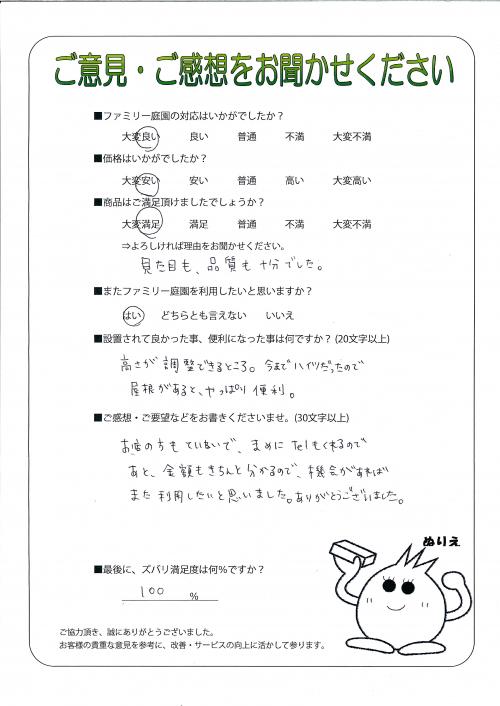 ご意見・ご感想をお聞かせください
■ファミリー庭園の対応はいかがでしたか？
大変良い 良い 普通 不満 大変不満
■価格はいかがでしたか？
大変安い 安い 普通 高い 大変高い
■商品はご満足頂けましたでしょうか？
大変満足 満足 普通 不満 大変不満
⇒よろしければ理由をお聞かせください。
見た目も、品質も十分でした。
■またファミリー庭園を利用したいと思いますか？
はい どちらとも言えない いいえ
■設置されて良かった事、便利になった事は何ですか？(20文字以上)
高さが調整できるところ。今までハイツだったので
屋根があると、やっぱり便利。
■ご感想・ご要望などをお書きくださいませ。(30文字以上)
お店の方もていねいで、まめにTelもくれるので
あと、金額もきちんと分かるので、機会があれば
また利用したいと思いました。ありがとうございました。
ぬりえ
■最後に、ズバリ満足度は何％ですか？
100 %
ご協力頂き、誠にありがとうございました。
お客様の貴重な意見を参考に、改善・サービスの向上に活かして参ります。